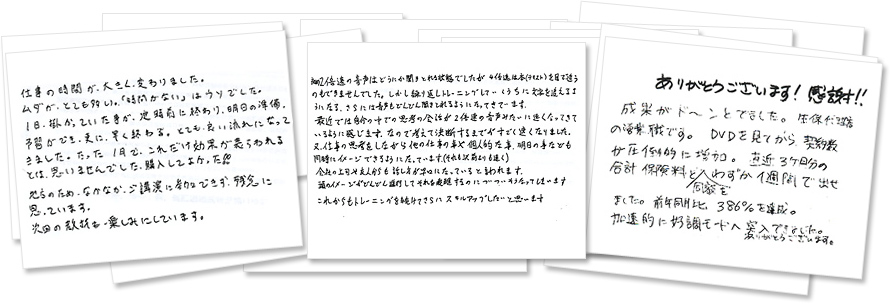 仕事の時間が、大きく変わりました。
ムダが、とても多い。「時間がない」はウソでした。
1日、掛かっていた事が、定時前に終わり、明日の準備、
予習ができ、更に、早く終わる。とても良い流れになって
きました。たった1月で、これだけ効果が表られれる
とは、思いませんでした。購入してよかった
地方のため、なかなか、ご講演に参加できず、残念に
思っています。
次回の教材も、楽しみにしています。
2倍速の音声はどうにか聞きとれる状態でしたが4倍速は本(テキスト)を目で追う
のもできませんでした。しかし繰り返しトレーニングしていくうちに文字を追えるよ
うになり、さらには音声もどんどん聞きとれるようになってきています。
最近では自分の中での思考の会話が2倍速の音声みたいに速くなってきて
いるように感じます。なので考えて決断するまでがすごく速くなりました。
又、仕事の思考をしながら他の仕事や個人的な事、明日の事なども
同時にイメージできるようになっています(それも以前よりも速く)
会社の上司や友人からも話し方が上手になっていると言われます。
頭のイメージがどんどん進行してそれを処理するのについついそうなってしまいます
これからもトレーニングを続けてさらにスキルアップしたいと思います
ありがとうございます!感謝!!
成果がド〜ンとでました。保険代理店
の営業職です。DVDを見てから、契約数
が圧倒的に増加。直近3ケ月分の
合計保険料と同額をわずか1週間で出せ
ました。前年同月比、386%を達成。
加速的に好調モードへ突入できました。
ありがとうございます。